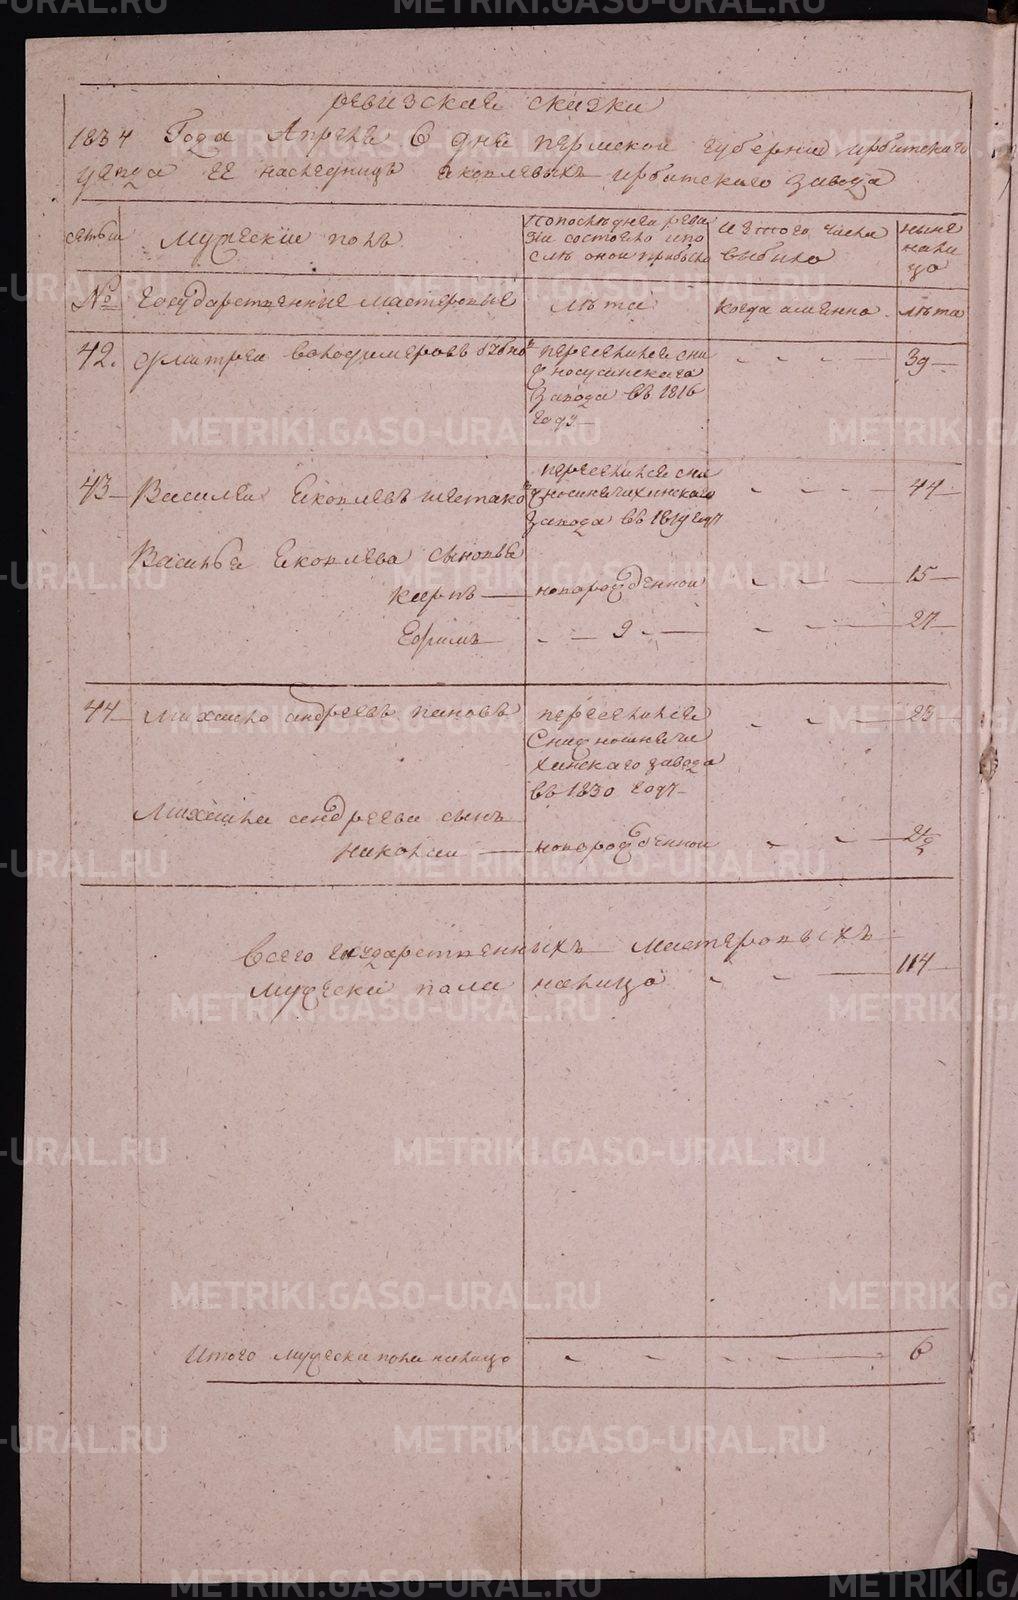 ревизская сказка
1834 Года Апреля 6 дня пермской губернии ирбитскаго
уезда ГГ наследницъ яковлевыхъ ирбитскаго завода
семьи
Мужеский полъ
По последней реви
зіи состояло и по
слѣ оной прибыло
Из того числа
выбыло
ныне
нали
цо
№
государственные мастеровые
лѣта
когда именно
лѣта
42. дмитрей володимеровъ
переселился сни
жно
завода въ 1816
году
39
43 Василей Яковлевъ шестако
переселился сни
жно
завода въ 1819 году
44
Василья Яковлева сыновья
Карпъ новорожденной 15
Ефимъ 9 27
44 михайло андреевъ пановъ
переселился
Снижно
хинскаго завода
въ 1830 году
23
Михайла андреева сынъ
николай новорожденной 2
всего государственныхъ мастеровыхъ
мужеска пола налицо 114
Итого мужеска пола налицо 6
METRIKI.GASO-URAL.RU